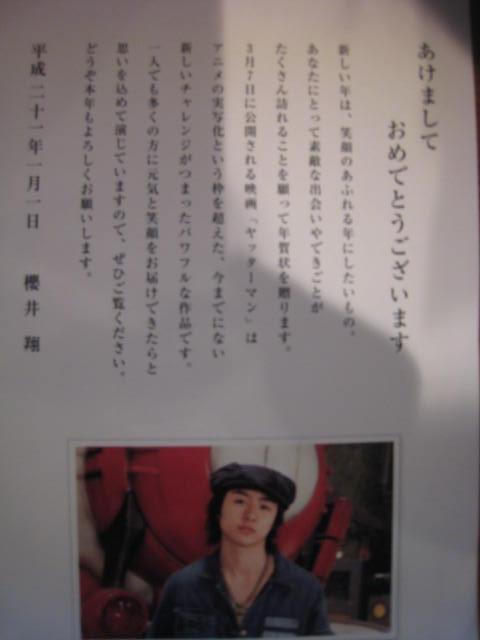 あけまして
おめでとうございます
新しい年は、笑顔のあふれる年にしたいもの。
あなたにとって素敵な出会いやできごとが
たくさん訪れることを願って年賀状を贈ります。
3月7日に公開される映画「ヤッターマン」は
アニメの実写化という枠を超えた、今までにない
新しいチャレンジがつまったパワフルな作品です。
一人でも多くの方に元気と笑顔をお届けできたらと
思いを込めて演じていますので、ぜひご覧ください。
どうぞ本年もよろしくお願いします。
平成二十一年一月一日　櫻井 翔